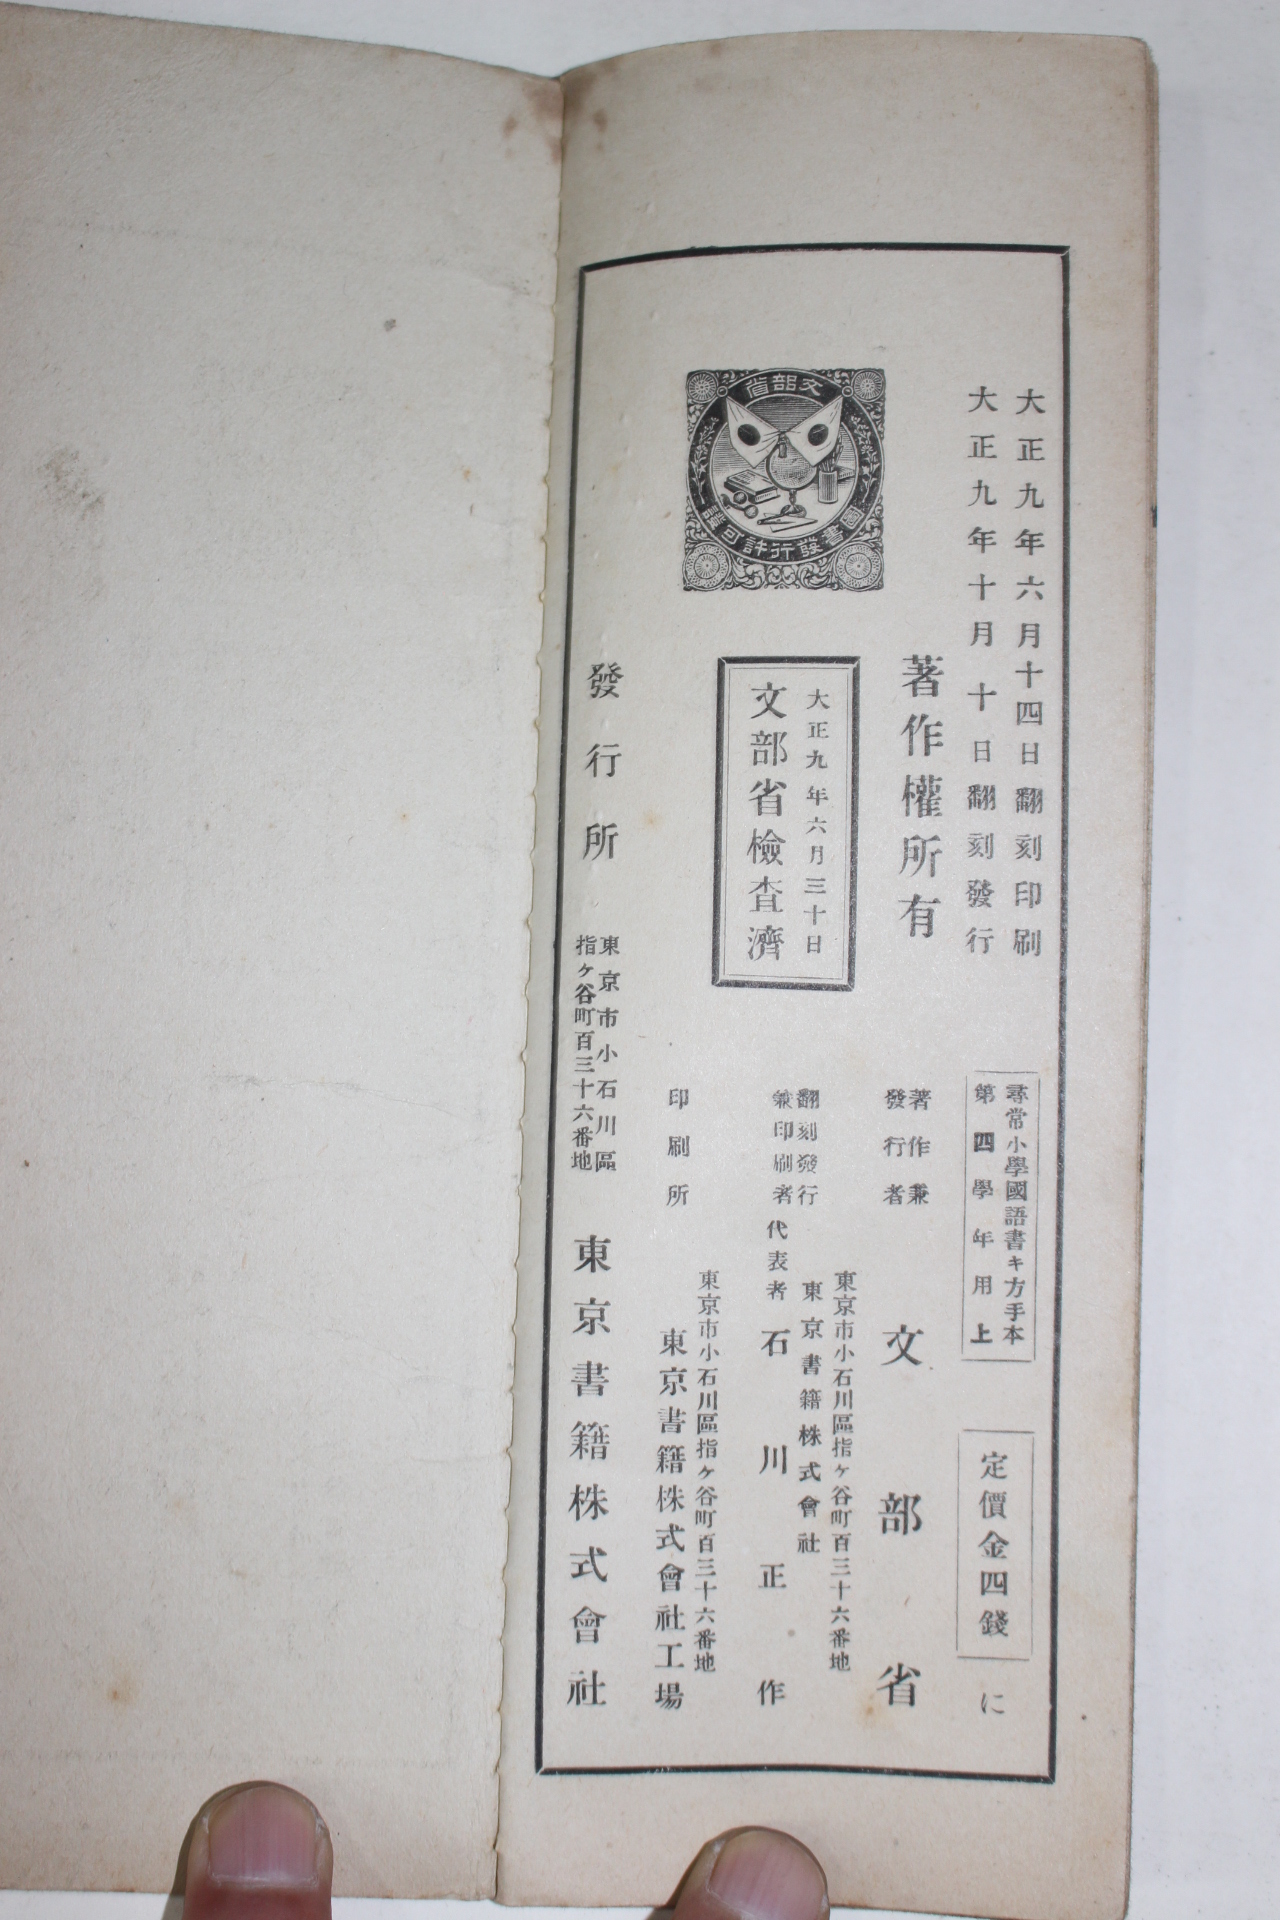 大正九年六月十四日翻刻印刷
大正九年十月十日翻刻發行
尋常小學國語書キ方手本
第四學年用上
定價金四錢
に
著作權所有
著作兼
發行者
文部省
大正九年六月三十日
文部省檢査濟
翻刻發行
兼印刷者
東京市小石川區指ヶ谷町百三十六番地
東京書籍株式會社
代表者 石川正作
印刷所
東京市小石川區指ヶ谷町百三十六番地
東京書籍株式會社工場
發行所
東京市小石川區
指ヶ谷町百三十六番地
東京書籍株式會社
文部省
圖書發行許可證